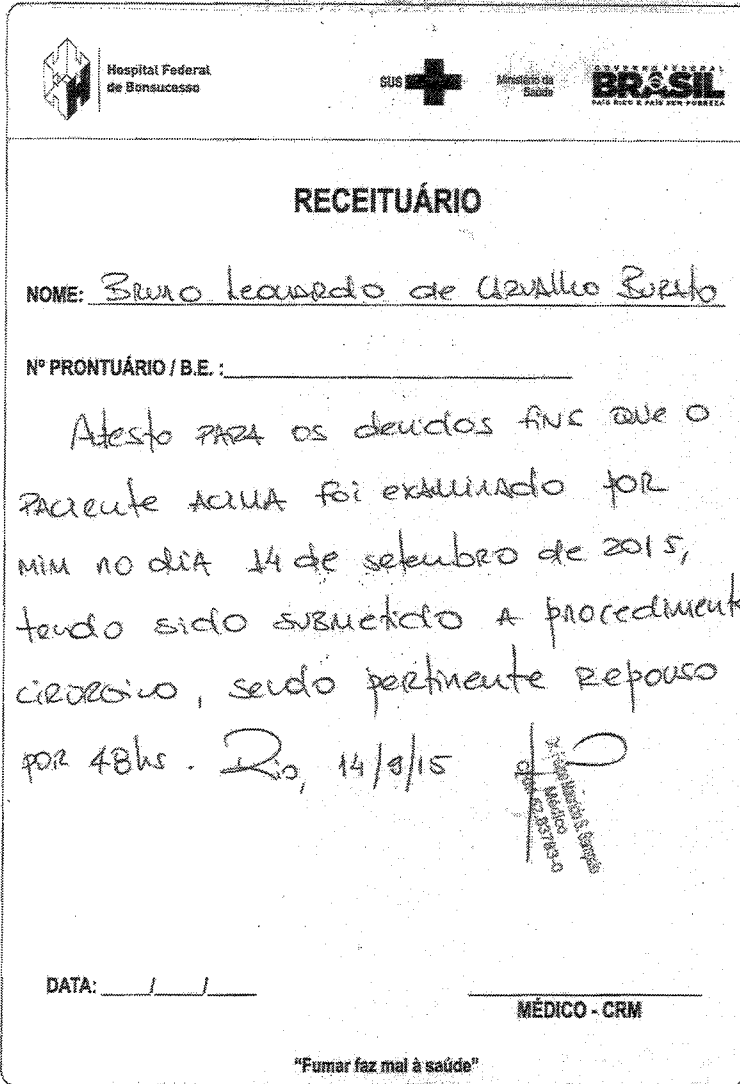 Hospital Federal
de Bonsucesso
SUS
Ministério da
Saúde
GOVERNO FEDERAL
BRASIL
PAÍS RICO É PAÍS SEM POBREZA
RECEITUÁRIO
NOME: Bruno Leonardo de Carvalho
Nº PRONTUÁRIO / B.E. :
Atesto para os devidos fins que o
paciente acima foi examinado por
mim no dia 14 de setembro de 2015,
tendo sido submetido a procedimento
cirúrgico, sendo pertinente repouso
por 48hs. Rio, 14/9/15
Médico
DATA: ___/___/___
MÉDICO - CRM
"Fumar faz mal à saúde"